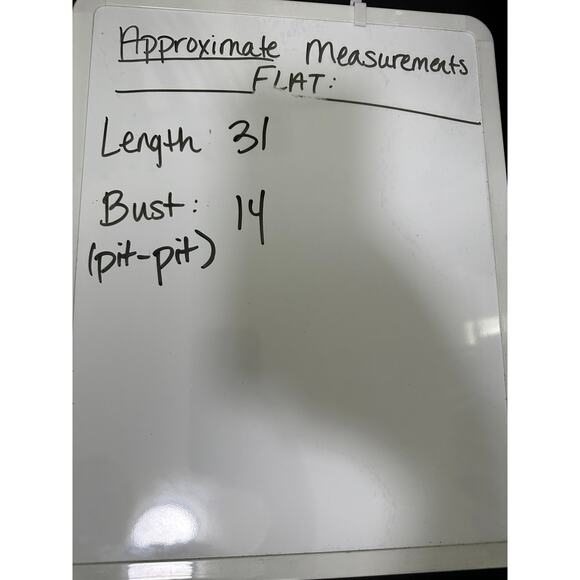 Approximate Measurements
FLAT:
Length: 31
Bust: 14
(pit-pit)